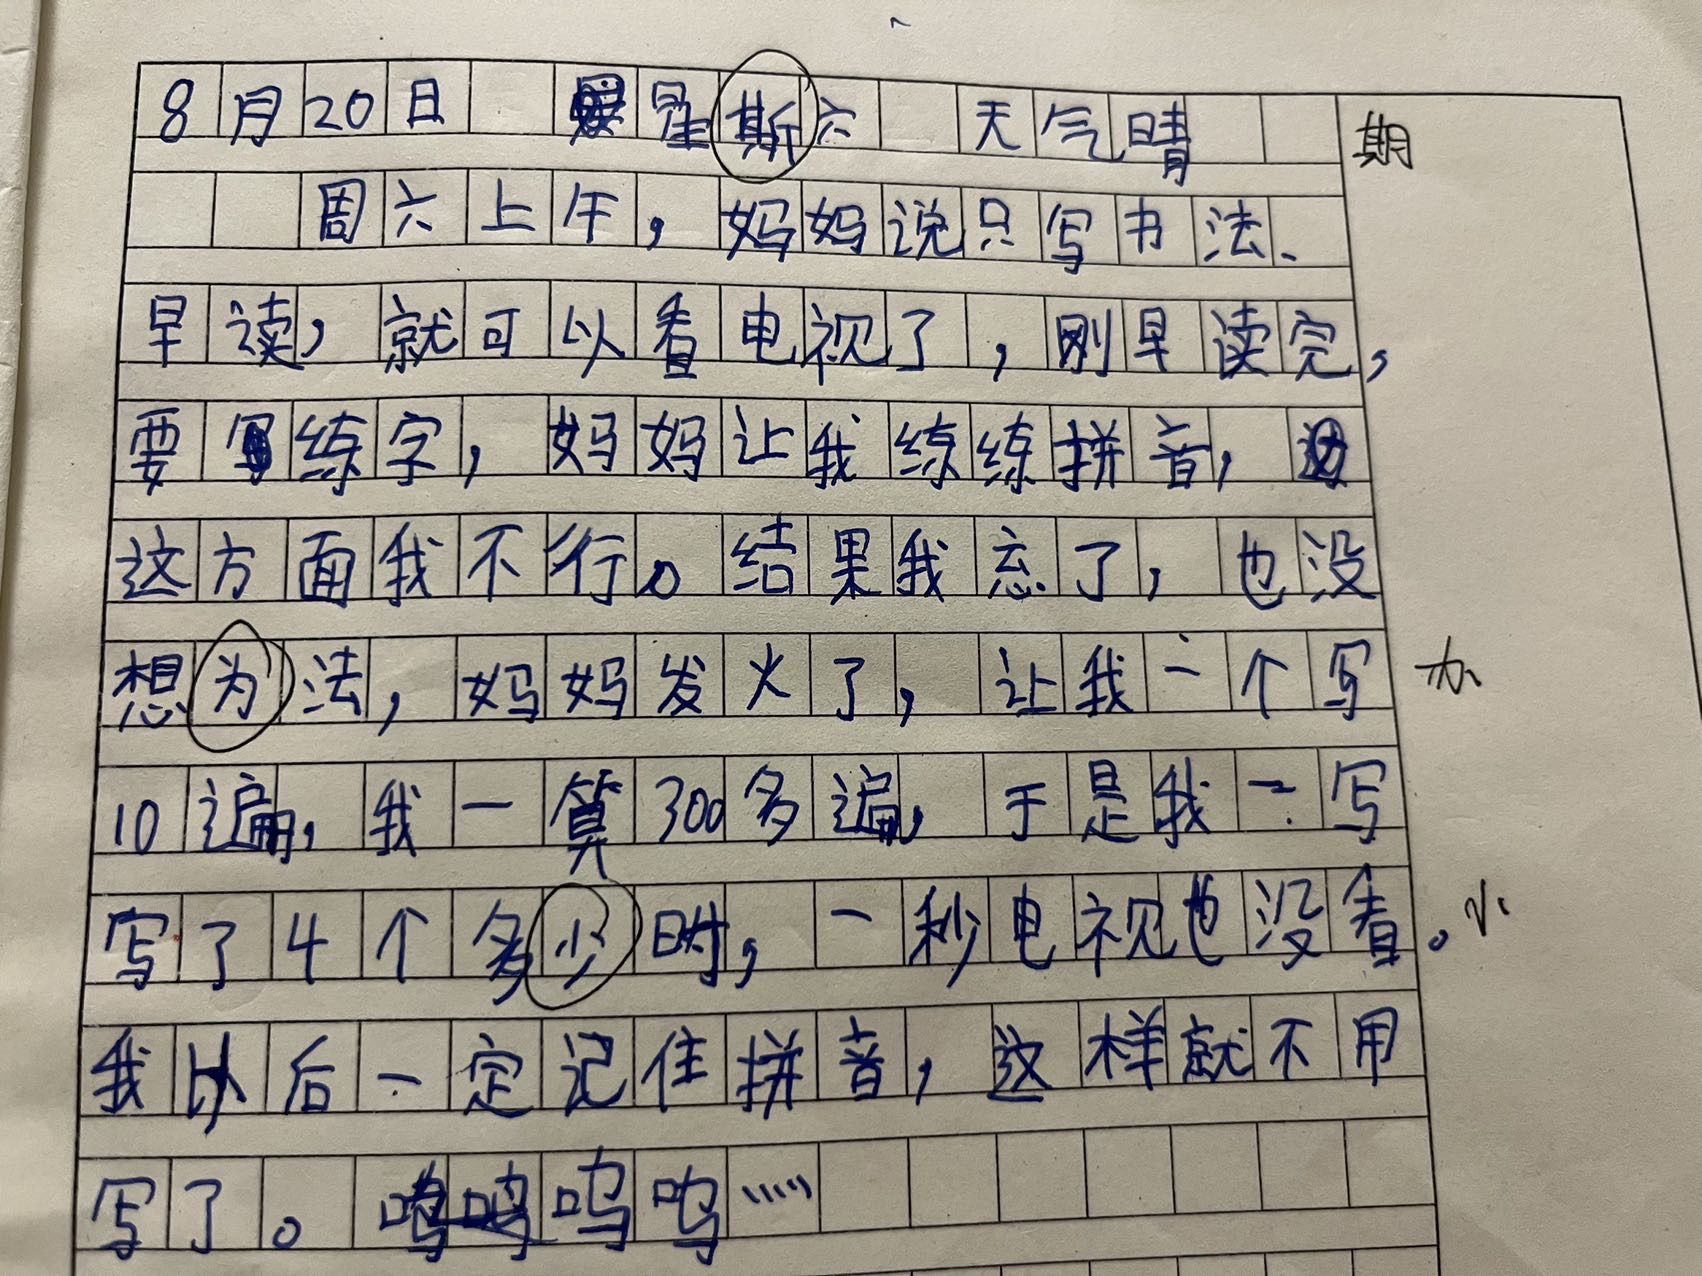 8月20日 星斯六 天气晴 期
周六上午，妈妈说只写书法、
早读，就可以看电视了，刚早读完，
要写练字，妈妈让我练练拼音，
这方面我不行。结果我忘了，也没
想为法，妈妈发火了，让我一个写 办
10遍，我一算300多遍，于是我一写
写了4个多少时，一秒电视也没看。小
我以后一定记住拼音，这样就不用
写了。呜呜……